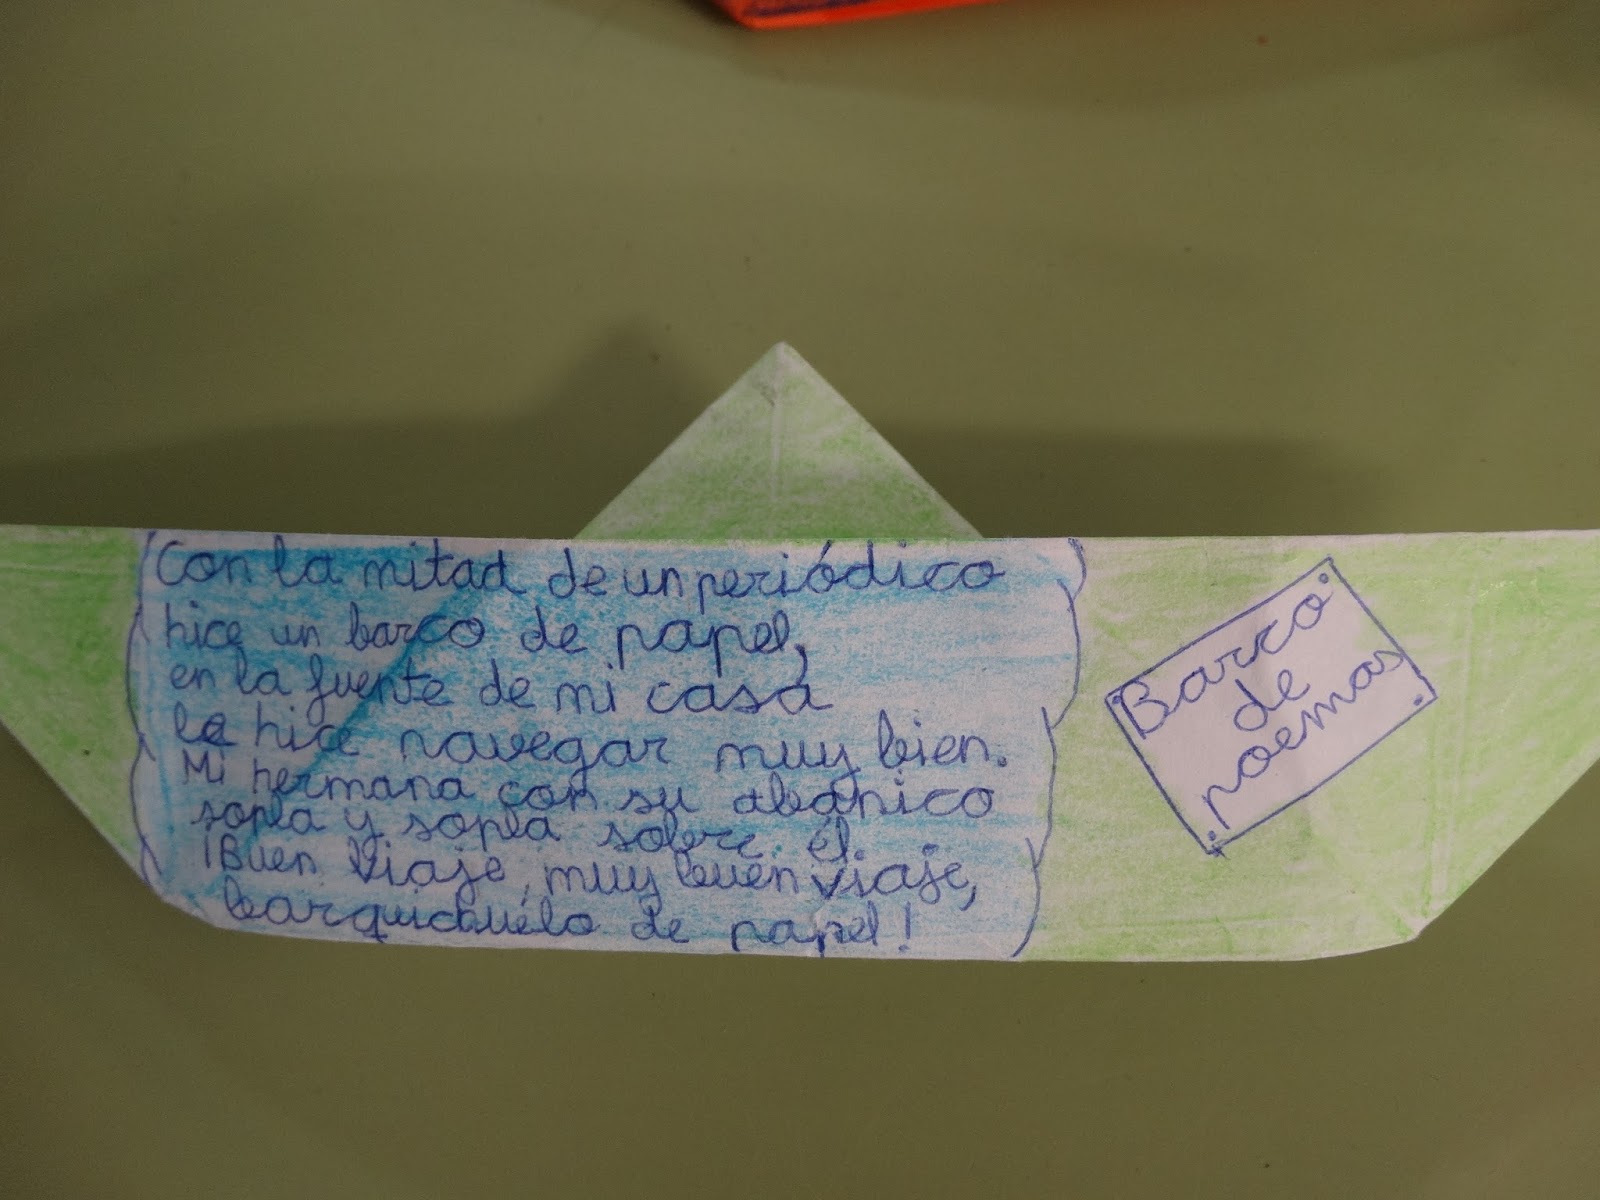 Con la mitad de un periódico
hice un barco de papel,
en la fuente de mi casa
le hice navegar muy bien.
Mi hermana con su abanico
sopla y sopla sobre él.
¡Buen viaje, muy buen viaje,
barquichuelo de papel!
Barco
de
poemas